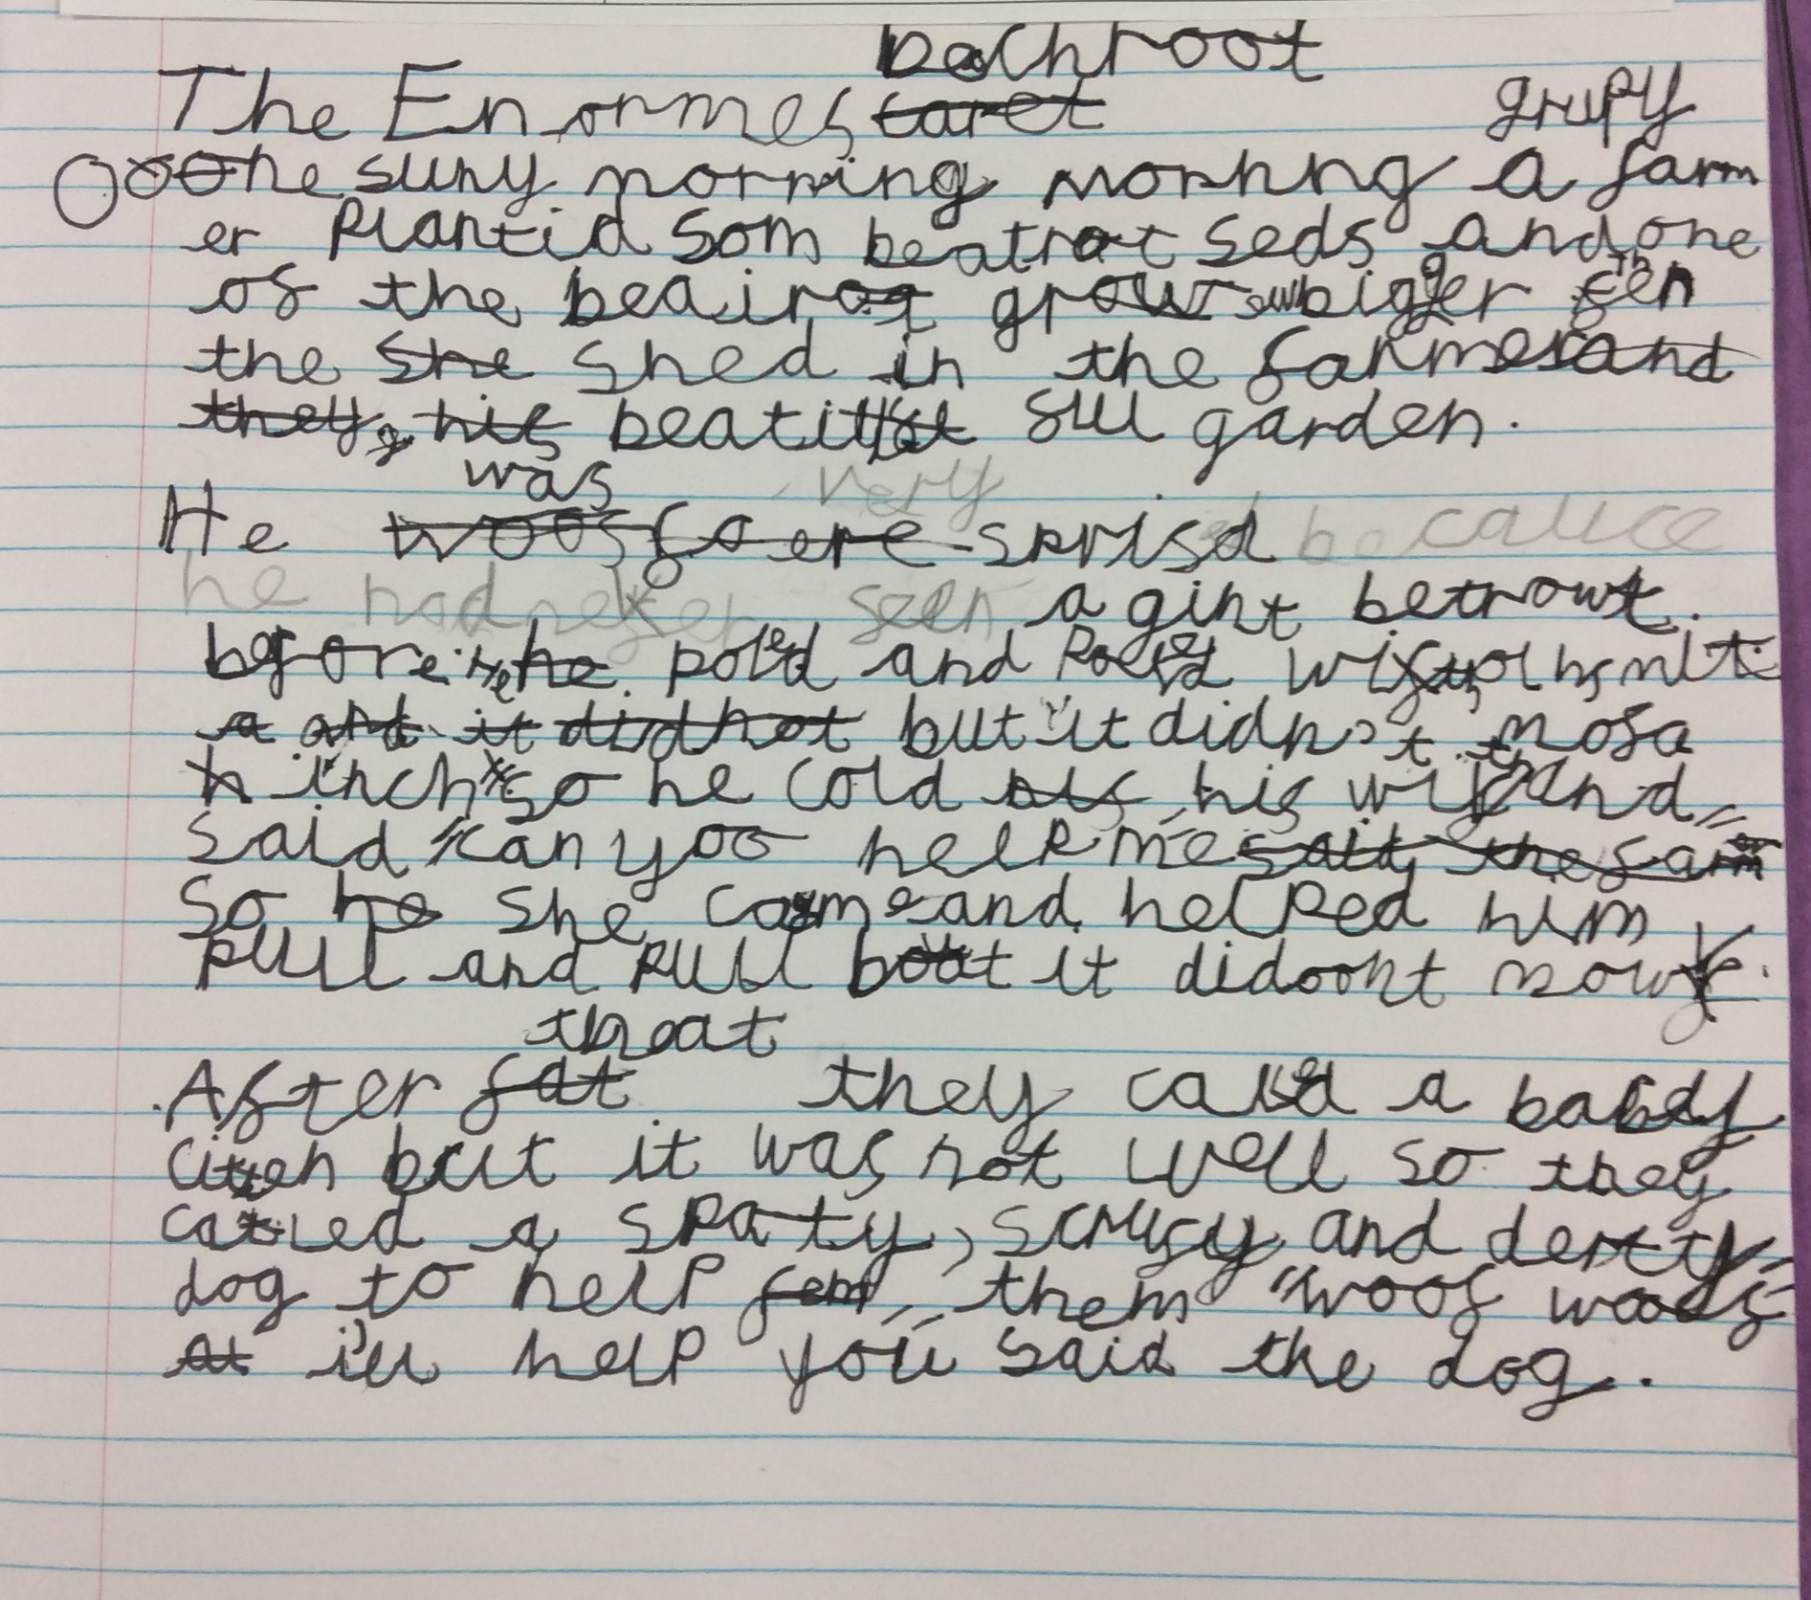 beachroot
The Enormes caret
grupy
Ooone suny morning morning a farm
er Plantid som beatrot seds and one
of the beairot grow bigger then
the she shed in the farmers and
they his beatifull garden.
was very
He woos fa ere sprisd because
he had never seen a gint betrowt.
before he polled and polled with hs mit
a and it did not but it didn't mofa
n inch so he cold his his wife and
said "can yoo help me" said the farm
So he she came and helped him
pull and pull boat it didoont move.
theat
After fat they called a baby
citen but it was not well so they
called a spoty, scrufy and derty
dog to help fem them "woof woof
at i'll help you" said the dog.